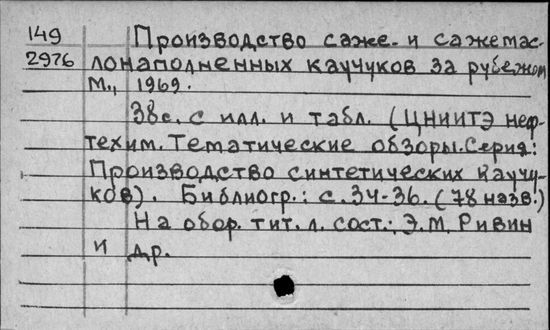 149 Производство саже- и сажемас-
2976 лонаполненных каучуков за рубежом
М., 1969.
38с. с илл. и табл. (ЦНИИТЭ неф-
техим. Тематические обзоры. Серия:
Производство синтетических каучу-
ков). Библиогр.: с. 34-36. (78 назв.)
На обор. тит. л. сост.: Э.М. Ривин
и др.